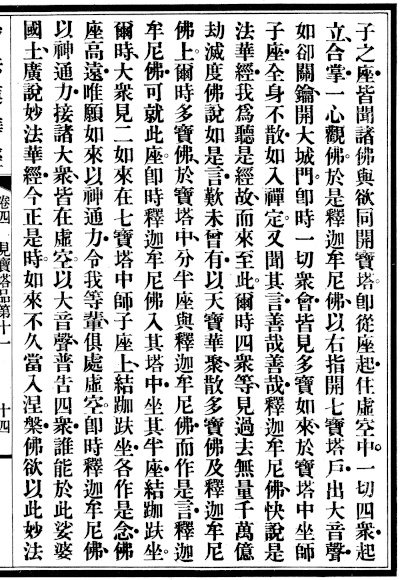 子之座皆聞諸佛與欲同開寶塔。卽從座起住虛空中。一切四衆起
立合掌一心觀佛。於是釋迦牟尼佛以右指開七寶塔戶出大音聲
如却關鑰開大城門。卽時一切衆會皆見多寶如來於寶塔中坐師
子座全身不散如入禪定。又聞其言善哉善哉釋迦牟尼佛快說是
法華經我爲聽是經故而來至此。爾時四衆等見過去無量千萬億
劫滅度佛說如是言歎未曾有以天寶華聚散多寶佛及釋迦牟尼
佛上。爾時多寶佛於寶塔中分半座與釋迦牟尼佛而作是言釋迦
牟尼佛可就此座。卽時釋迦牟尼佛入其塔中坐其半座結跏趺坐。
爾時大衆見二如來在七寶塔中師子座上結跏趺坐各作是念佛
座高遠唯願如來以神通力令我等輩俱處虛空。卽時釋迦牟尼佛
以神通力接諸大衆皆在虛空。以大音聲普告四衆誰能於此娑婆
國土廣說妙法華經今正是時。如來不久當入涅槃佛欲以此妙法
卷四 見寶塔品第十一 十四